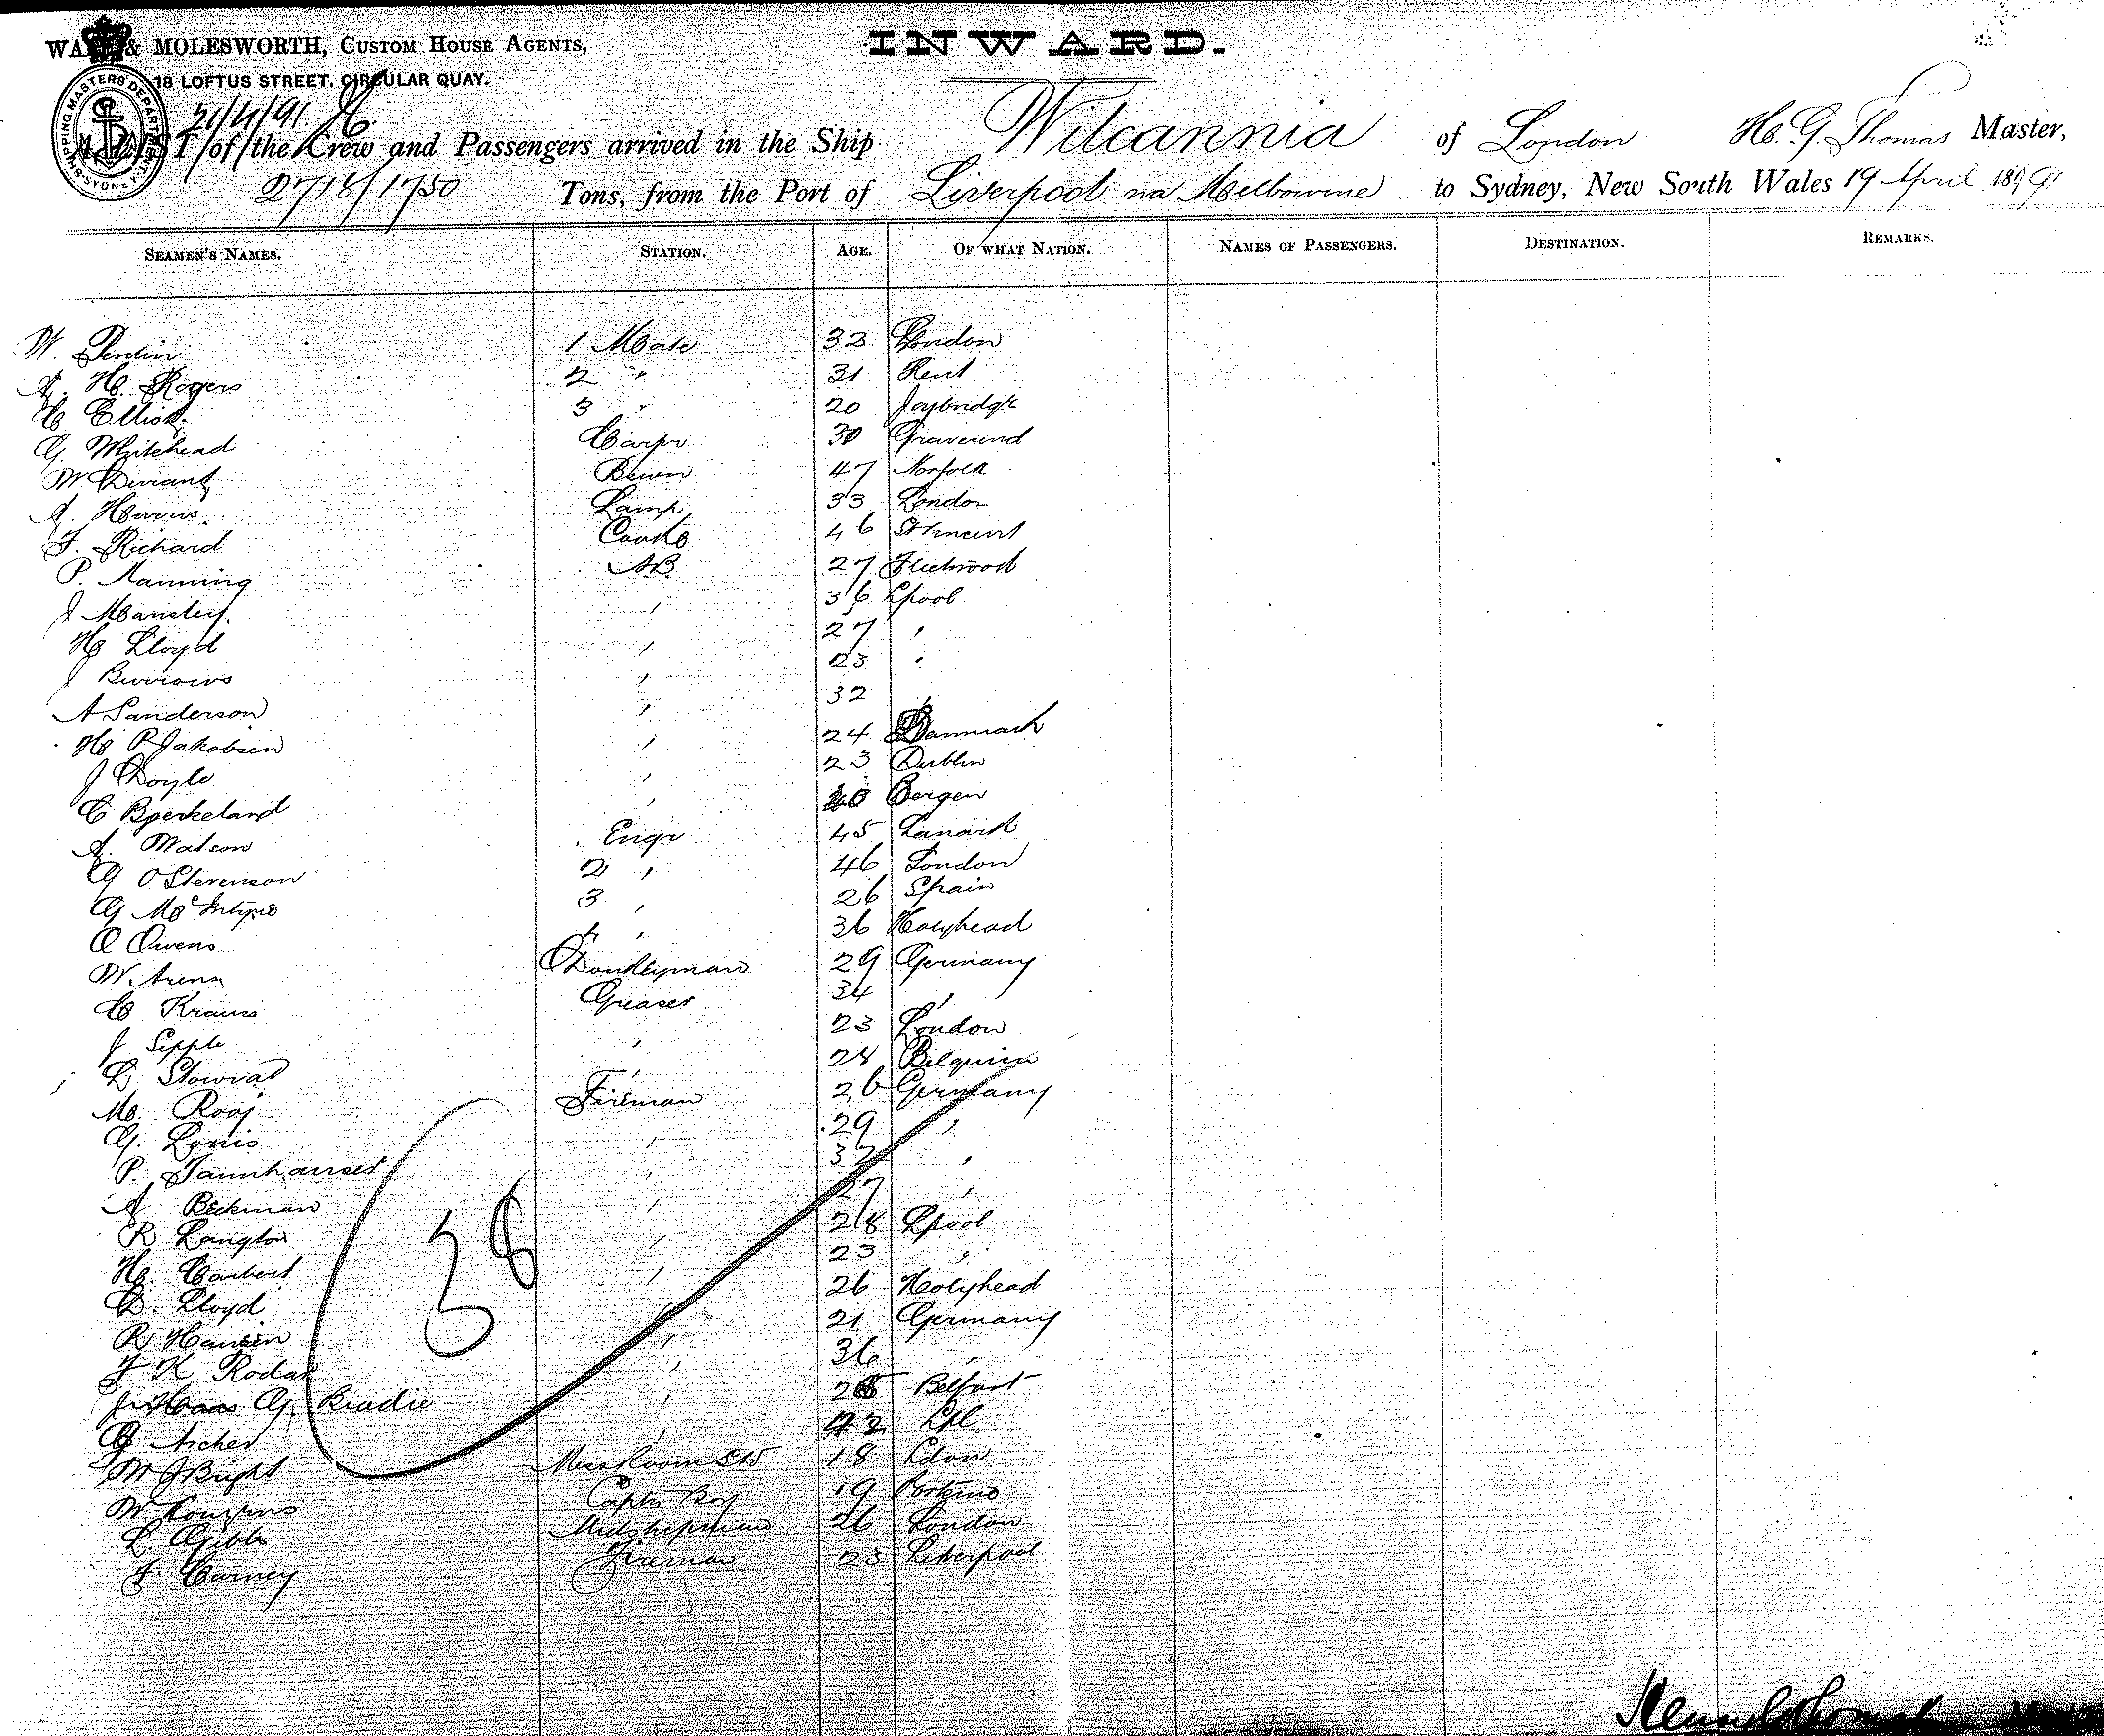 INWARD.
& MOLESWORTH, CUSTOM HOUSE AGENTS,
18 LOFTUS STREET, CIRCULAR QUAY.
SHIPPING MASTERS DEPARTMENT SYDNEY
21/4/91
A LIST of the Crew and Passengers arrived in the Ship Wilcannia of London H. G. Thomas Master,
2718/1750 Tons, from the Port of Liverpool via Melbourne to Sydney, New South Wales 19 April 1891
SEAMEN'S NAMES. STATION. AGE. OF WHAT NATION. NAMES OF PASSENGERS. DESTINATION. REMARKS.
W. 1 Mate 33 London
A. H. Rogers 2 " 31 Kent
3 " 20
G. Whitehead Carpr 30 Gravesend
W 47 Norfolk
A. Harris Lamp 33 London
F. Richard Cook 46 St Vincent
P. Manning AB 27 Fleetwood
J , 36 Lpool
H Lloyd , 27 ,
J Burrows , 23 ,
A Sanderson , 32 ,
H P Jakobsen , 24 Danmark
J Doyle , 23 Dublin
C Bjerkeland , Bergen
A. Watson Engr 45 Lanark
G O Stevenson 2 , 46 London
G McIntyre 3 , 26 Spain
O Owens 4 , 36 Holyhead
W Donkeyman 29 Germany
C Kraus Greaser 34 ,
J Sipple , 23 London
L , 24 Belguim
M. Rooj Fireman 26 Germany
G. Louis , 29 ,
P. Tannhauser , 32 ,
A Beckman , 27 ,
R Langton , 28 Lpool
H. , 23 ,
D. Lloyd , 26 Holyhead
R Hansen , 21 Germany
F K , 36 ,
G. , Belfast
G Archer , 42 Lpl
W J Bright Mess Room Std 18 Ldon
W Capts Boy 19
L. Gibbs Midshipman 26 London
F Carney Fireman 23 Liverpool
38